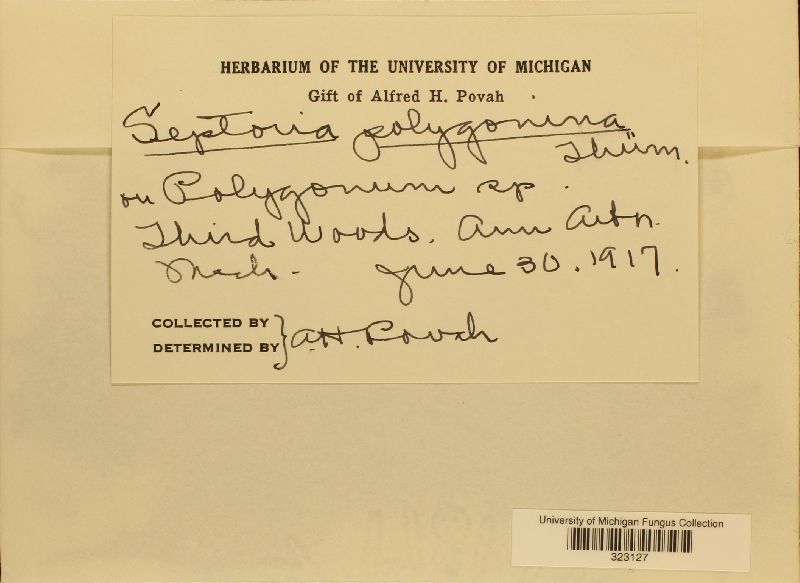 HERBARIUM OF THE UNIVERSITY OF MICHIGAN
Gift of Alfred H. Povah
Septoria polygonina
Thüm.
on Polygonum sp.
Third Woods. Ann Arbor.
Mich. June 30. 1917.
COLLECTED BY
DETERMINED BY } A.H. Povah
University of Michigan Fungus Collection
323127